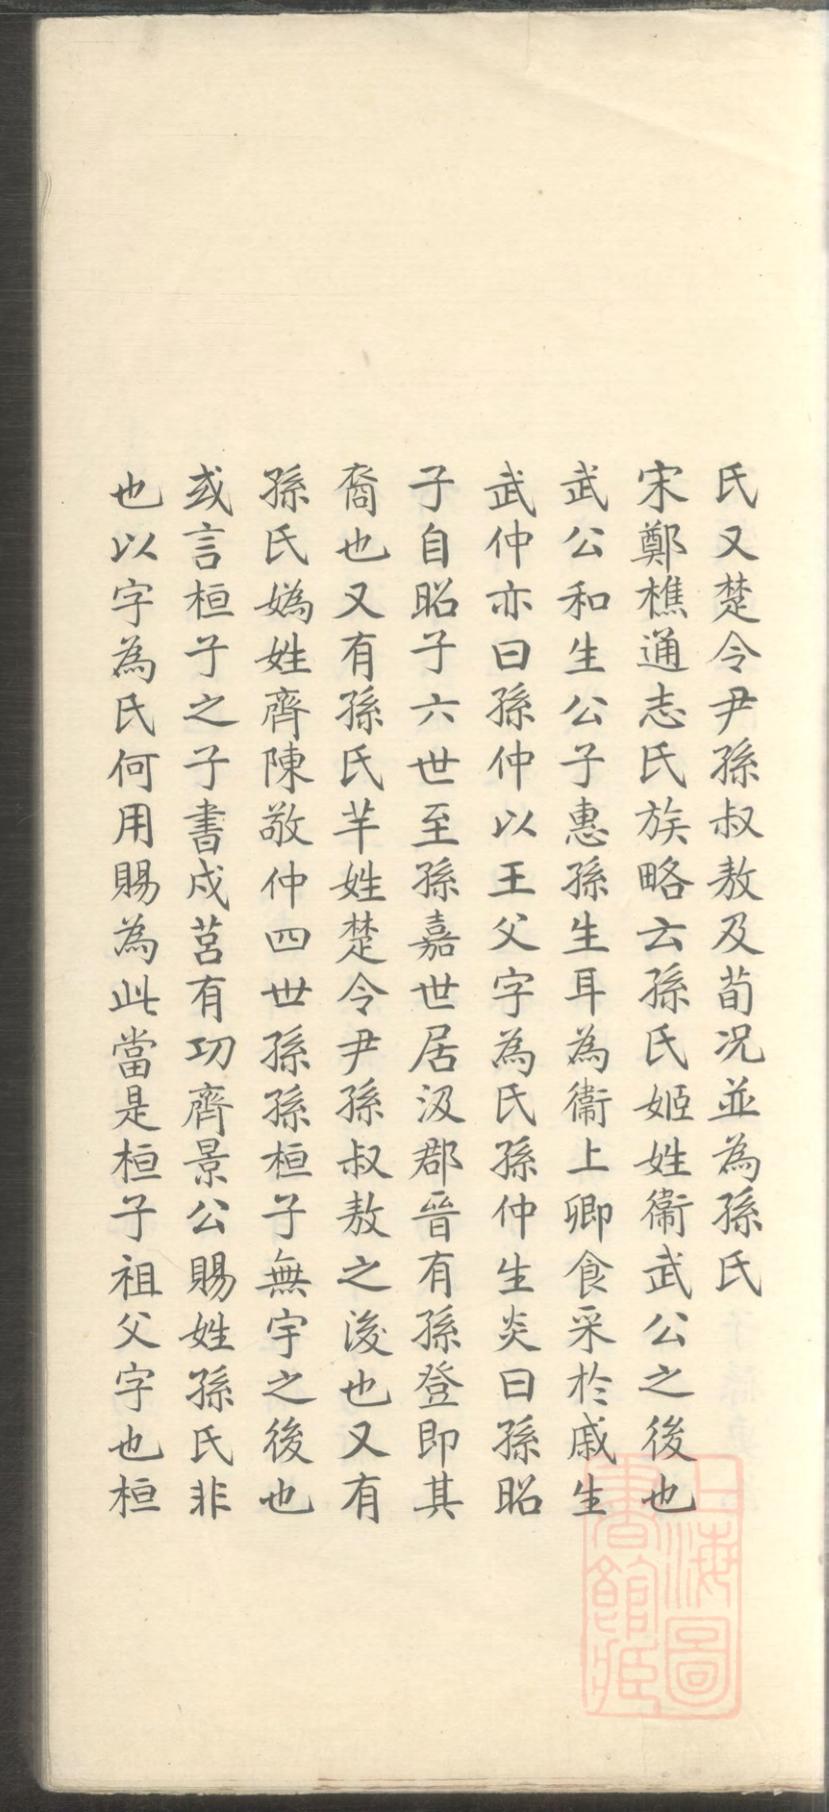 氏又楚令尹孫叔敖及荀况並為孫氏
宋鄭樵通志氏族略云孫氏姬姓衞武公之後也
武公和生公子惠孫生耳為衞上卿食采於戚生
武仲亦曰孫仲以王父字為氏孫仲生炎曰孫昭
子自昭子六世至孫嘉世居汲郡晉有孫登即其
裔也又有孫氏芊姓楚令尹孫叔敖之後也又有
孫氏媯姓齊陳敬仲四世孫孫桓子無宇之後也
或言桓子之子書戍莒有功齊景公賜姓孫氏非
也以字為氏何用賜為此當是桓子祖父字也桓
上海圖
書館藏